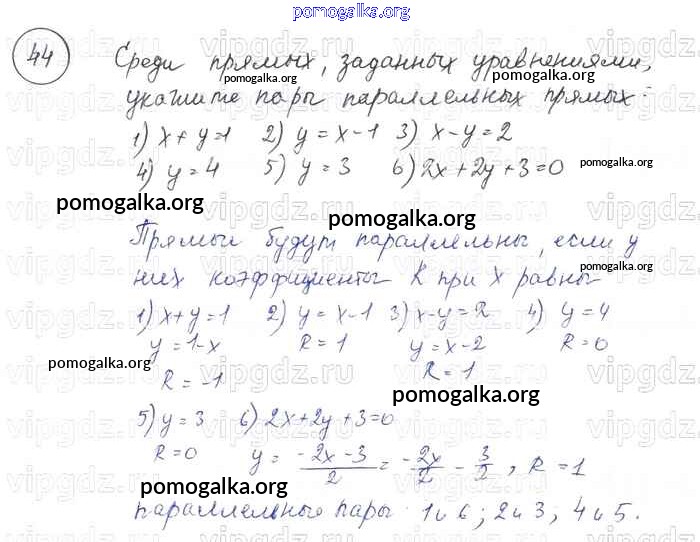 pomogalka.org
44
Среди прямых, заданных уравнениями,
pomogalka.org pomogalka.org
укажите пары параллельных прямых:
1) x+y=1 2) y=x-1 3) x-y=2
4) y=4 5) y=3 6) 2x+2y+3=0
pomogalka.org
pomogalka.org
pomogalka.org
Прямые будут параллельны, если у
них коэффициенты k при x равны
pomogalka.org
1) x+y=1 2) y=x-1 3) x-y=2 4) y=4
y=1-x k=1 y=x-2 k=0
pomogalka.org
k=-1 k=1
pomogalka.org
5) y=3 6) 2x+2y+3=0
k=0 y=(-2x-3)/2=-2x/2-3/2, k=1
pomogalka.org
pomogalka.org
pomogalka.org
параллельные пары 1 и 6; 2 и 3; 4 и 5.
vipgdz.ru